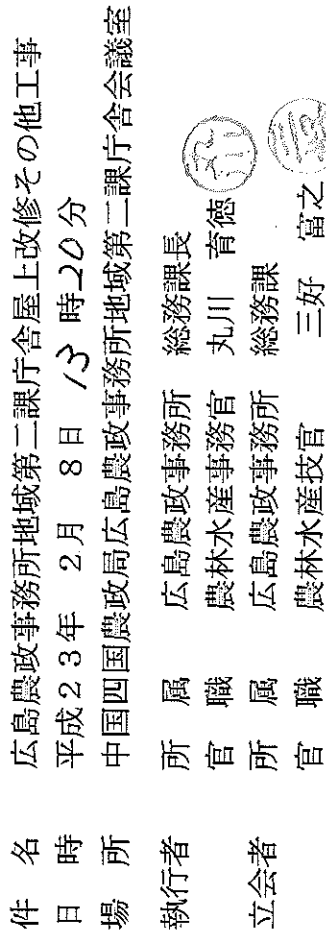 件 名 広島農政事務所地域第二課庁舎屋上改修その他工事
日 時 平成23年 2月 8日 13時20分
場 所 中国四国農政局広島農政事務所地域第二課庁舎会議室
執行者 所 属 広島農政事務所 総務課長
官 職 農林水産事務官 丸川 育徳
立会者 所 属 広島農政事務所 総務課
官 職 農林水産技官 三好 富之